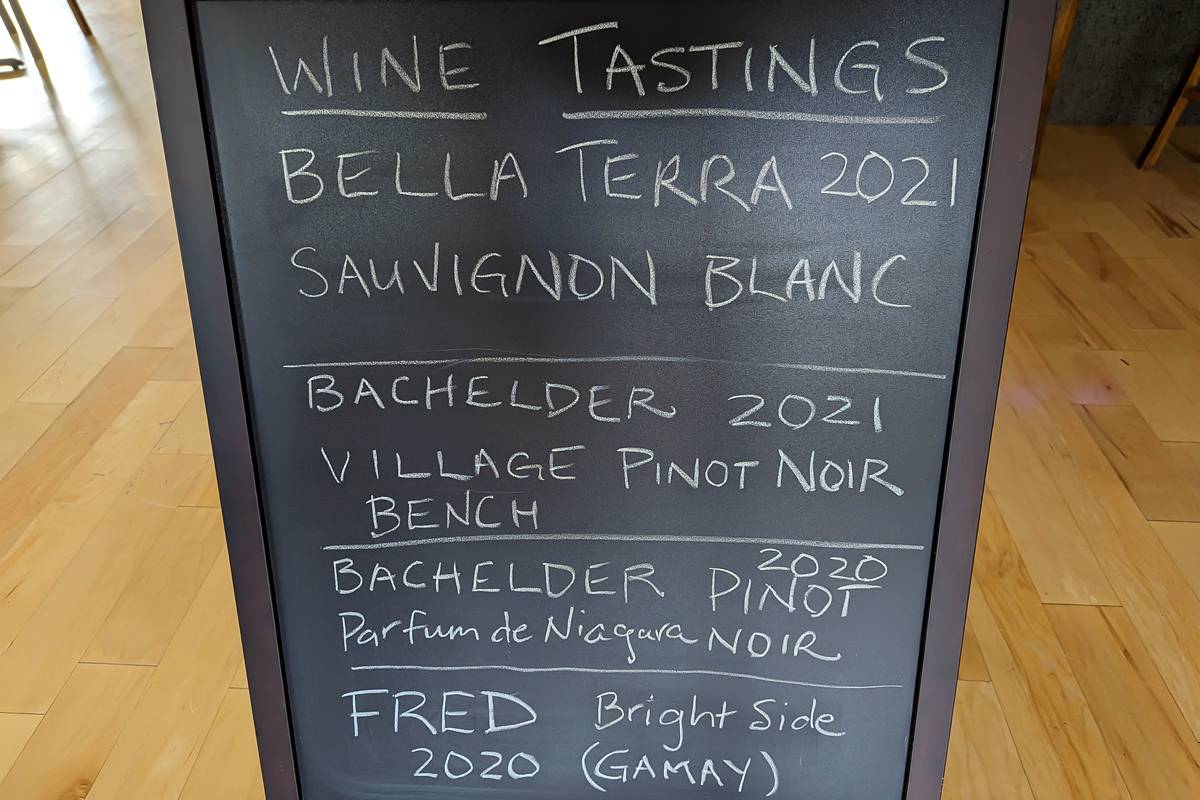 WINE TASTINGS
BELLA TERRA 2021
SAUVIGNON BLANC
BACHELDER 2021
VILLAGE PINOT NOIR
BENCH
BACHELDER 2020 PINOT
Parfum de Niagara NOIR
FRED Bright Side
2020 (GAMAY)